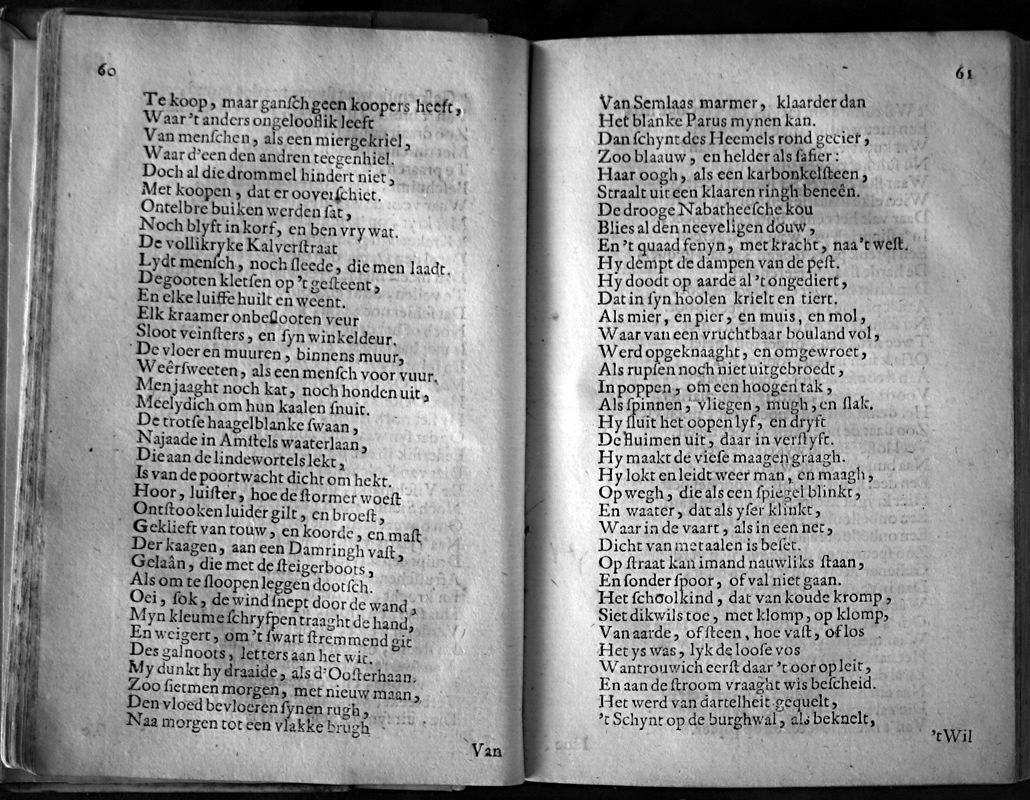 60
Te koop, maar ganſch geen koopers heeft,
Waar 't anders ongelooflik leeft
Van menſchen, als een miergekriel,
Waar d'een den andren teegenhiel.
Doch al die drommel hindert niet,
Met koopen, dat er ooverſchiet.
Ontelbre buiken werden ſat,
Noch blyft in korf, en ben vry wat.
De vollikryke Kalverſtraat
Lydt menſch, noch ſleede, die men laadt.
De gooten kletſen op 't geſteent,
En elke luiffe huilt en weent.
Elk kraamer onbeſlooten veur
Sloot veinſters, en ſyn winkeldeur.
De vloer en muuren, binnens muur,
Weêrſweeten, als een menſch voor vuur.
Men jaaght noch kat, noch honden uit,
Meelydich om hun kaalen ſnuit.
De trotſe haagelblanke ſwaan,
Najaade in Amſtels waaterlaan,
Die aan de lindewortels lekt,
Is van de poortwacht dicht om hekt.
Hoor, luiſter, hoe de ſtormer woeſt
Ontſtooken luider gilt, en broeſt,
Geklieft van touw, en koorde, en maſt
Der kaagen, aan een Damringh vaſt,
Gelaân, die met de ſteigerboots,
Als om te ſloopen leggen dootſch.
Oei, ſok, de wind ſnept door de wand,
Myn kleume ſchryfpen traaght de hand,
En weigert, om 't ſwart ſtremmend git
Des galnoots, letters aan het wit.
My dunkt hy draaide, als d'Ooſterhaan.
Zoo ſietmen morgen, met nieuw maan,
Den vloed bevloeren ſynen rugh,
Naa morgen tot een vlakke brugh
Van
61
Van Semlaas marmer, klaarder dan
Het blanke Parus mynen kan.
Dan ſchynt des Heemels rond gecier,
Zoo blaauw, en helder als ſafier:
Haar oogh, als een karbonkelſteen,
Straalt uit een klaaren ringh beneên.
De drooge Nabatheeſche kou
Blies al den neeveligen douw,
En 't quaad fenyn, met kracht, naa't weſt.
Hy dempt de dampen van de peſt.
Hy doodt op aarde al 't ongediert,
Dat in ſyn hoolen krielt en tiert.
Als mier, en pier, en muis, en mol,
Waar van een vruchtbaar bouland vol,
Werd opgeknaaght, en omgewroet,
Als rupſen noch niet uitgebroedt,
In poppen, om een hoogen tak,
Als ſpinnen, vliegen, mugh, en ſlak.
Hy ſluit het oopen lyf, en dryft
De fluimen uit, daar in verſtyft.
Hy maakt de vieſe maagen graagh.
Hy lokt en leidt weer man, en maagh,
Op wegh, die als een ſpiegel blinkt,
En waater, dat als yſer klinkt,
Waar in de vaart, als in een net,
Dicht van metaalen is beſet.
Op ſtraat kan imand nauwliks ſtaan,
En ſonder ſpoor, of val niet gaan.
Het ſchoolkind, dat van koude kromp,
Siet dikwils toe, met klomp, op klomp,
Van aarde, of ſteen, hoe vaſt, of los
Het ys was, lyk de looſe vos
Wantrouwich eerſt daar 't oor op leit,
En aan de ſtroom vraaght wis beſcheid.
Het werd van dartelheit gequelt,
't Schynt op de burghwal, als beknelt,
'tWil